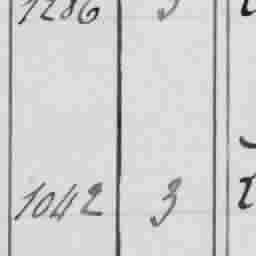 1286 3
1042 3